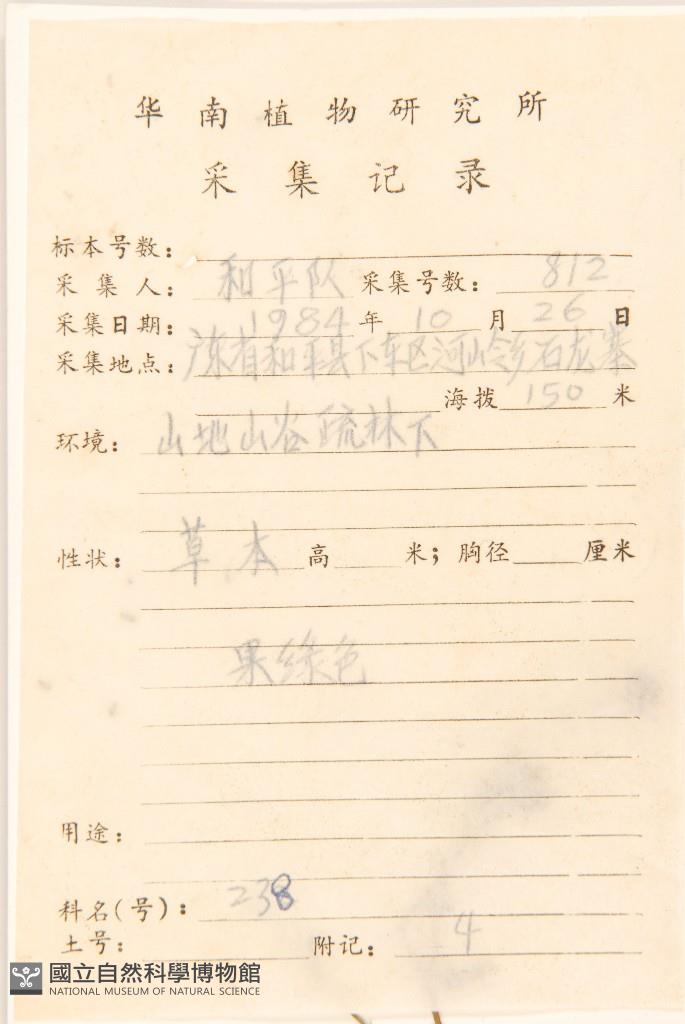 华南植物研究所
采集记录
标本号数：
采集人： 和平队 采集号数： 812
采集日期： 1984 年 10 月 26 日
采集地点： 广东省和平县下车区河岭乡石龙寨
海拨 150 米
环境： 山地山谷疏林下
性状： 草本 高 米；胸径 厘米
果绿色
用途：
科名(号)： 238
土号： 附记： 4
國立自然科學博物館
NATIONAL MUSEUM OF NATURAL SCIENCE